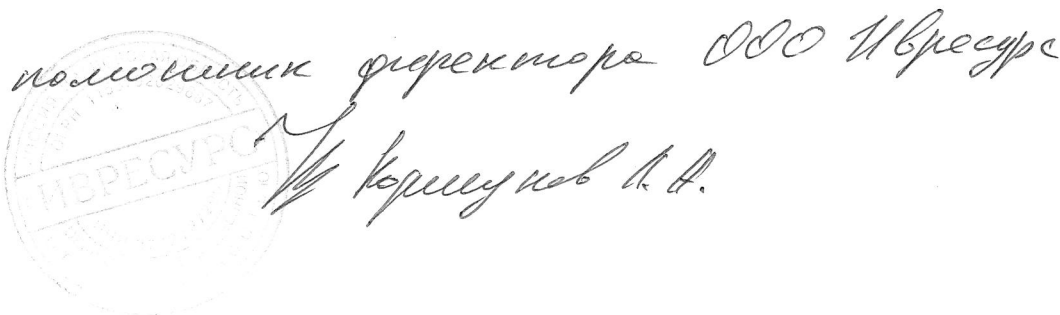 помощник директора ООО Ивресурс
Коршунов А. А.
ИВРЕСУРС